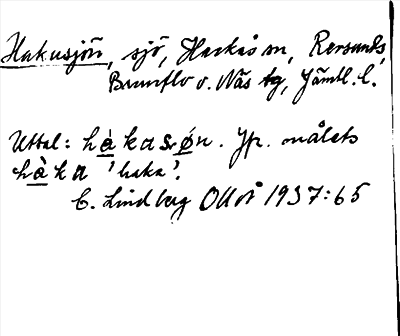 Hakusjön, sjö, Hackås sn, Rersunds,
Brunflo o. Näs tg, Jämtl. l.
Uttal: hàkasøn. Jfr. målets
hàka 'haka'.
E. Lindberg OUÅ 1937:65